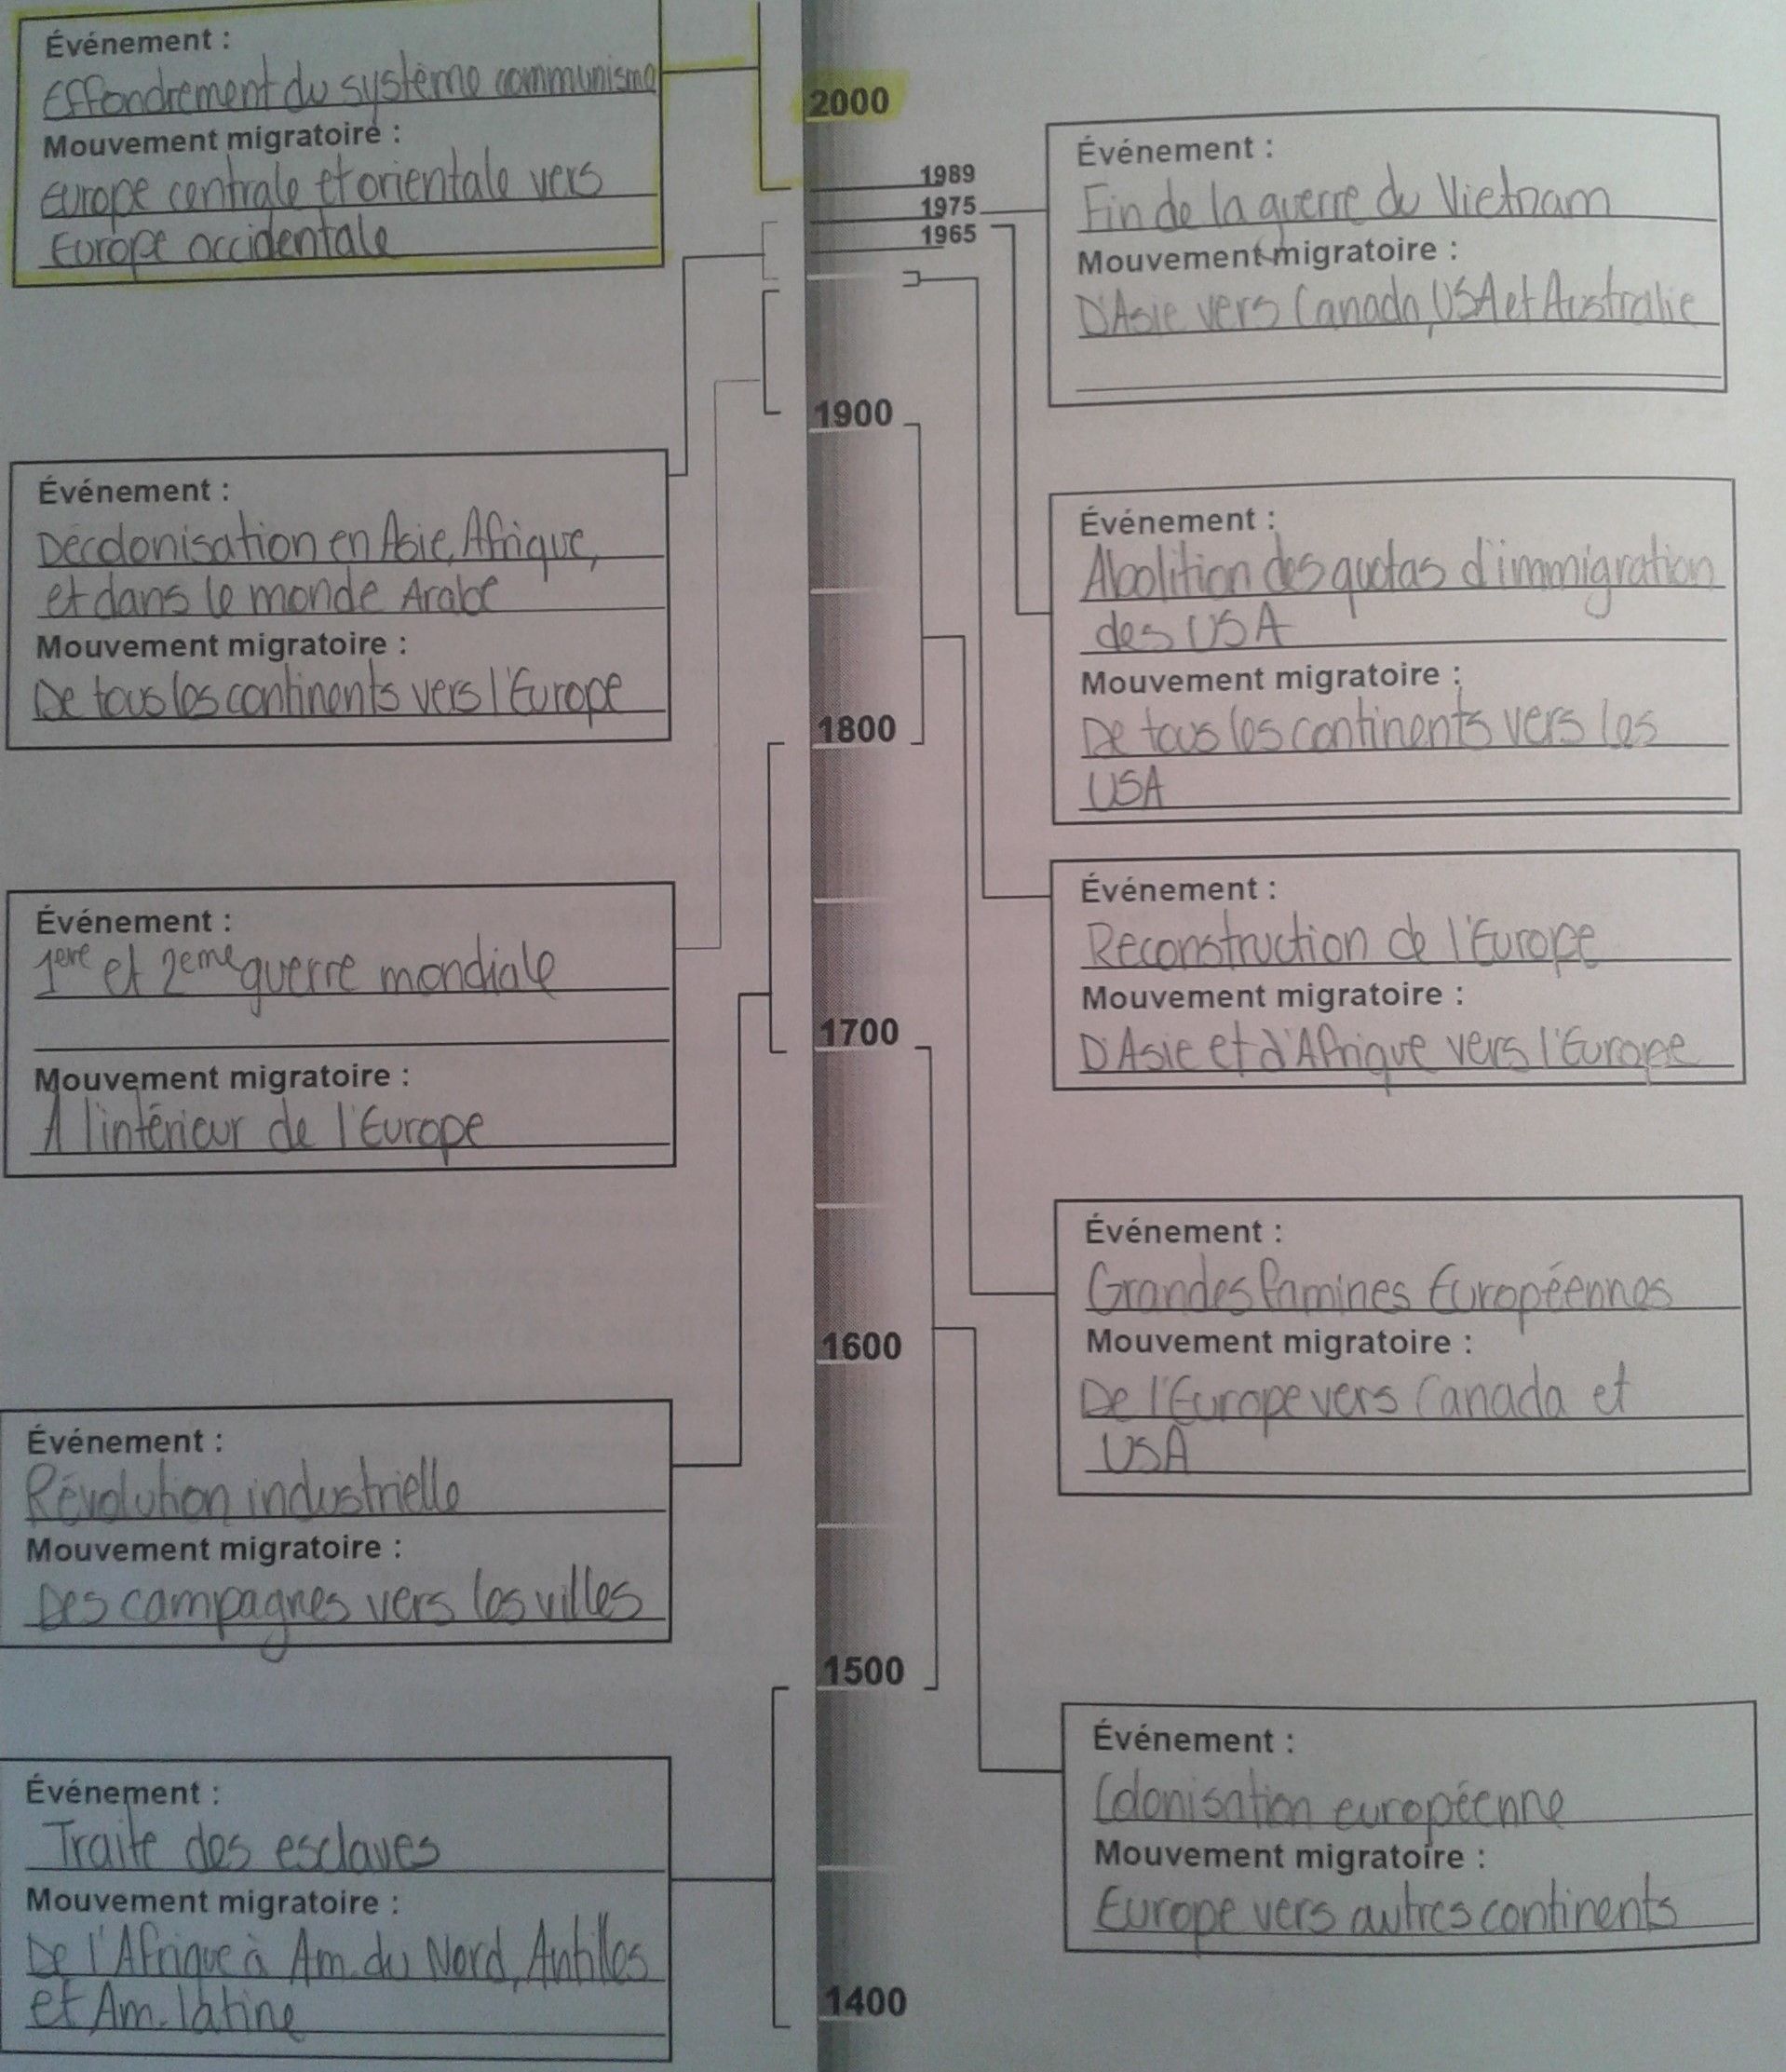 Événement :
Effondrement du système communisme
Mouvement migratoire :
Europe centrale et orientale vers
Europe occidentale
Événement :
Décolonisation en Asie, Afrique,
et dans le monde Arabe
Mouvement migratoire :
De tous les continents vers l'Europe
Événement :
1ere et 2eme guerre mondiale
Mouvement migratoire :
A l'intérieur de l'Europe
Événement :
Révolution industrielle
Mouvement migratoire :
Des campagnes vers les villes
Événement :
Traite des esclaves
Mouvement migratoire :
De l'Afrique à Am. du Nord, Antilles
et Am. latine
2000
1989
1975
1965
1900
1800
1700
1600
1500
1400
Événement :
Fin de la guerre du Vietnam
Mouvement migratoire :
D'Asie vers Canada, USA et Australie
Événement :
Abolition des quotas d'immigration
des USA
Mouvement migratoire :
De tous les continents vers les
USA
Événement :
Reconstruction de l'Europe
Mouvement migratoire :
D'Asie et d'Afrique vers l'Europe
Événement :
Grandes famines Européennes
Mouvement migratoire :
De l'Europe vers Canada et
USA
Événement :
Colonisation européenne
Mouvement migratoire :
Europe vers autres continents